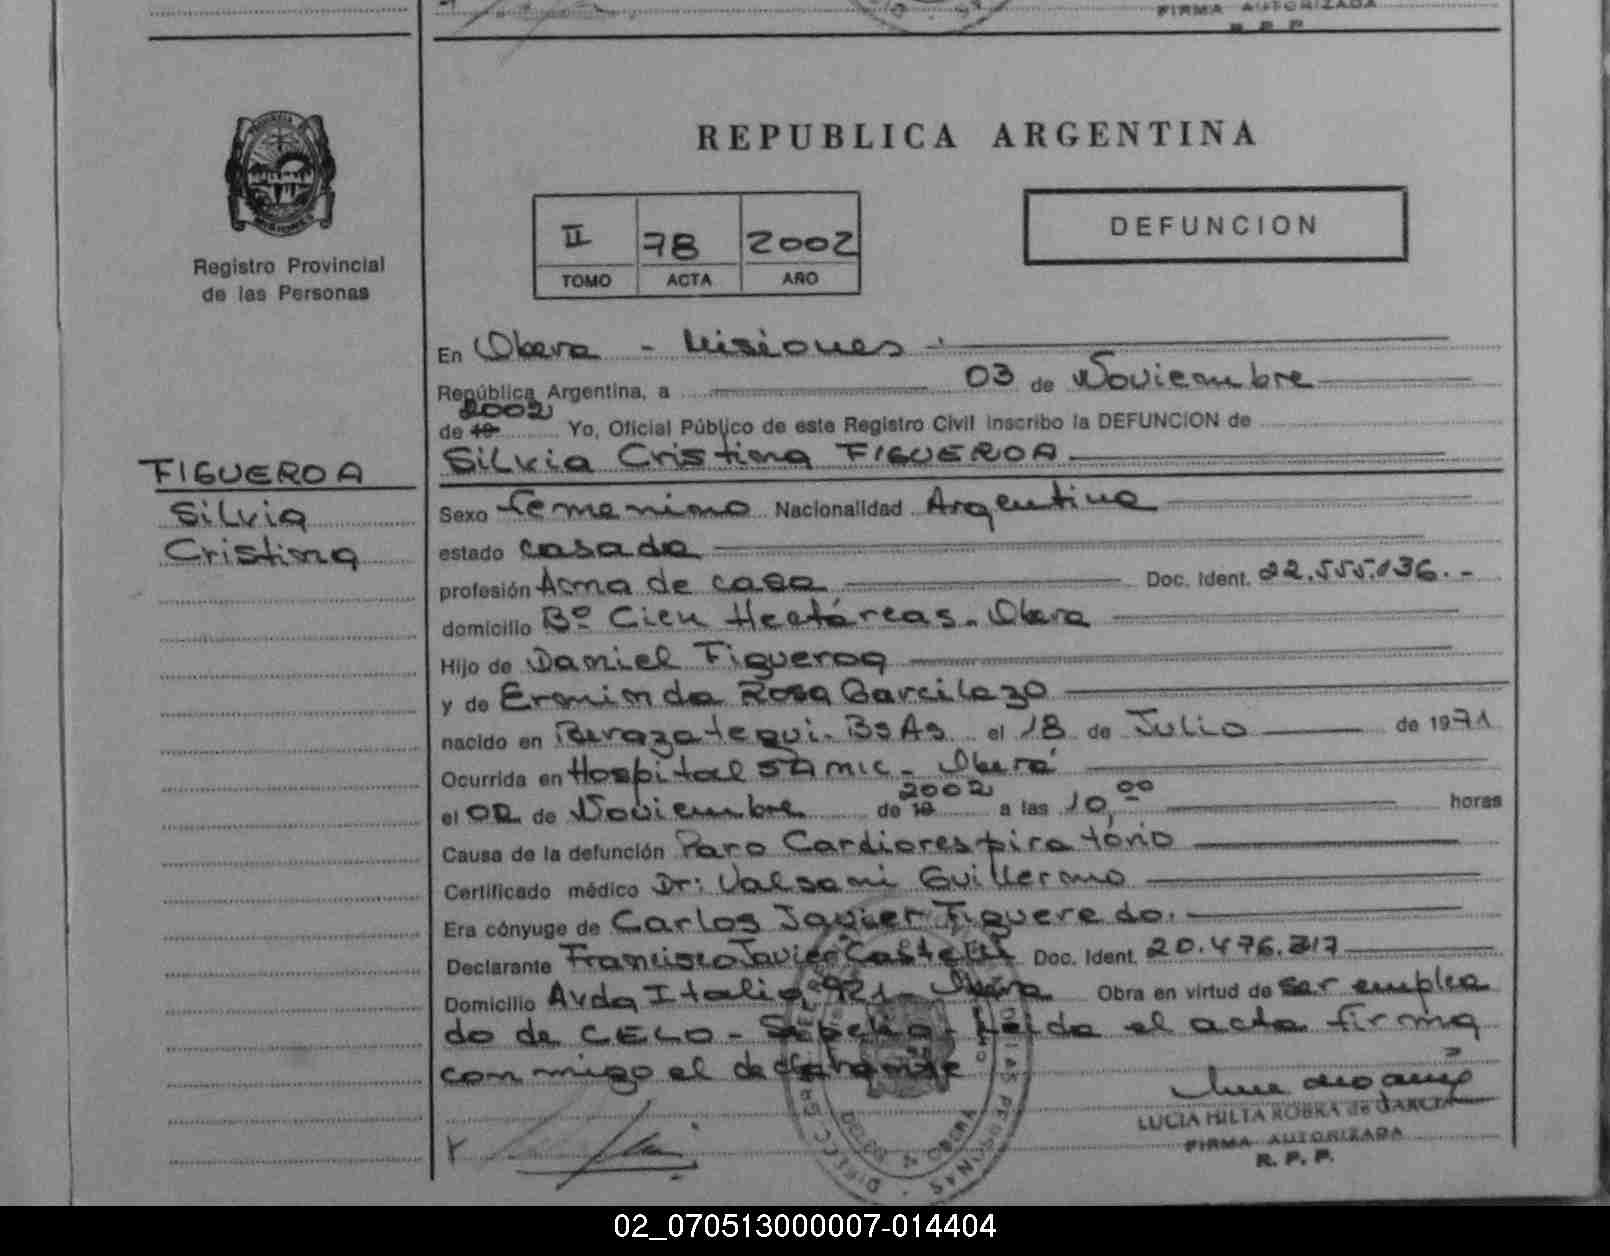 FIRMA AUTORIZADA
R. P. P.
REPUBLICA ARGENTINA
PROVINCIA DE
MISIONES
Registro Provincial
de las Personas
II 78 2002
TOMO ACTA AÑO
DEFUNCION
En Obera - Misiones
República Argentina, a 03 de Noviembre
2002
de 19 Yo, Oficial Público de este Registro Civil inscribo la DEFUNCION de
Silvia Cristina FIGUEROA
FIGUEROA
Silvia
Cristina
Sexo femenino Nacionalidad Argentina
estado casada
profesión Ama de casa Doc. Ident. 22.555.136.-
domicilio Bº Cien Hectáreas. Obera
Hijo de Daniel Figueroa
y de Erminda Rosa Garcilazo
nacido en Berazategui. Bs As el 18 de Julio de 1971
Ocurrida en Hospital SAMIC - Oberá
2002
el 02 de Noviembre de 19 a las 10,00 horas
Causa de la defunción Paro Cardiorespiratorio
Certificado médico Dr: Valsani Guillermo
Era cónyuge de Carlos Javier Figueredo.
Declarante Francisco Javier Doc. Ident. 20.476.317
Domicilio Avda Italia 921 - Obera Obra en virtud de ser emplea
do de CELO - Sepelio - Leida el acta firma
con migo el declarante
LUCIA HILTA ROBRA de GARCIA
FIRMA AUTORIZADA
R. P. P.
02_070513000007-014404